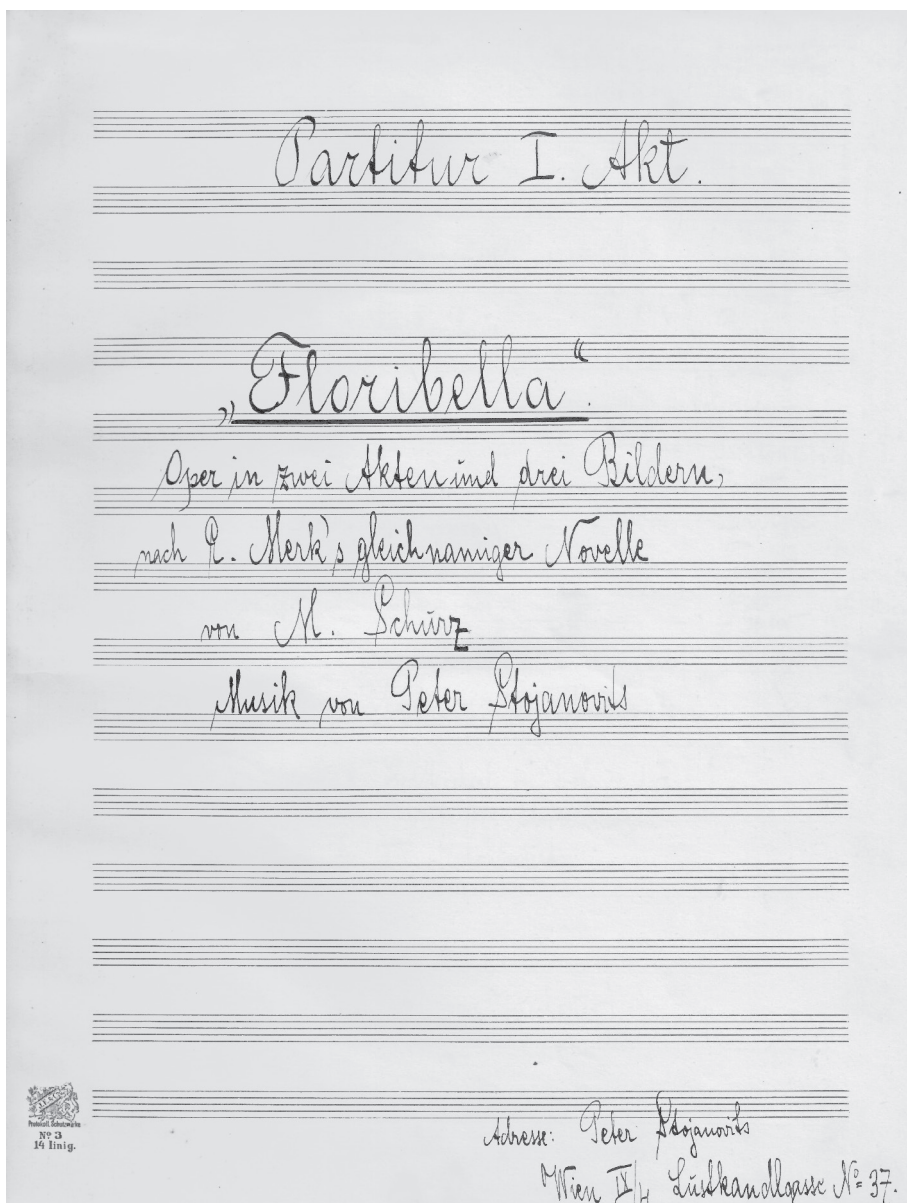 Partitur I. Akt.
„Floribella“.
Oper in zwei Akten und drei Bildern,
nach R. Merk's gleichnamiger Novelle
von M. Schurz
Musik von Peter Stojanovits
Protokoll. Schutzmarke
Nº 3
14 linig.
Adresse: Peter Stojanovits
Wien IX/4 Lustkandlgasse Nº 37.